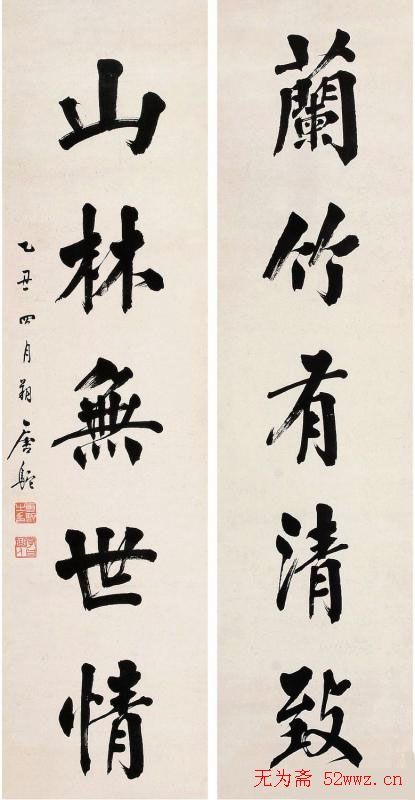 蘭竹有清致
山林無世情
乙丑四月朔唐駝
无为斋 52wwz.cn